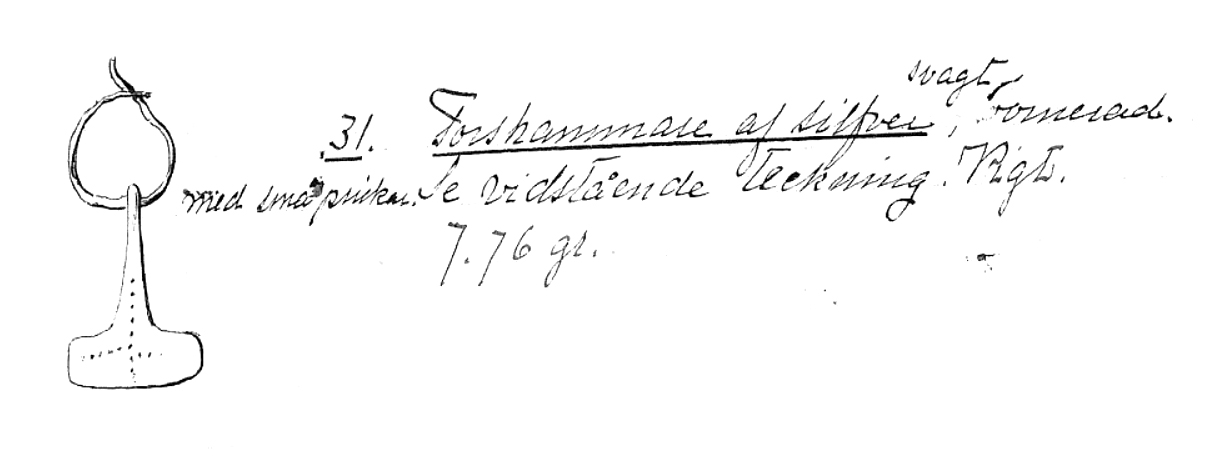 svagt
31. Torshammare af silfver, ornerad.
med små prikar. Se vidstående teckning. Vigt.
7.76 gr.